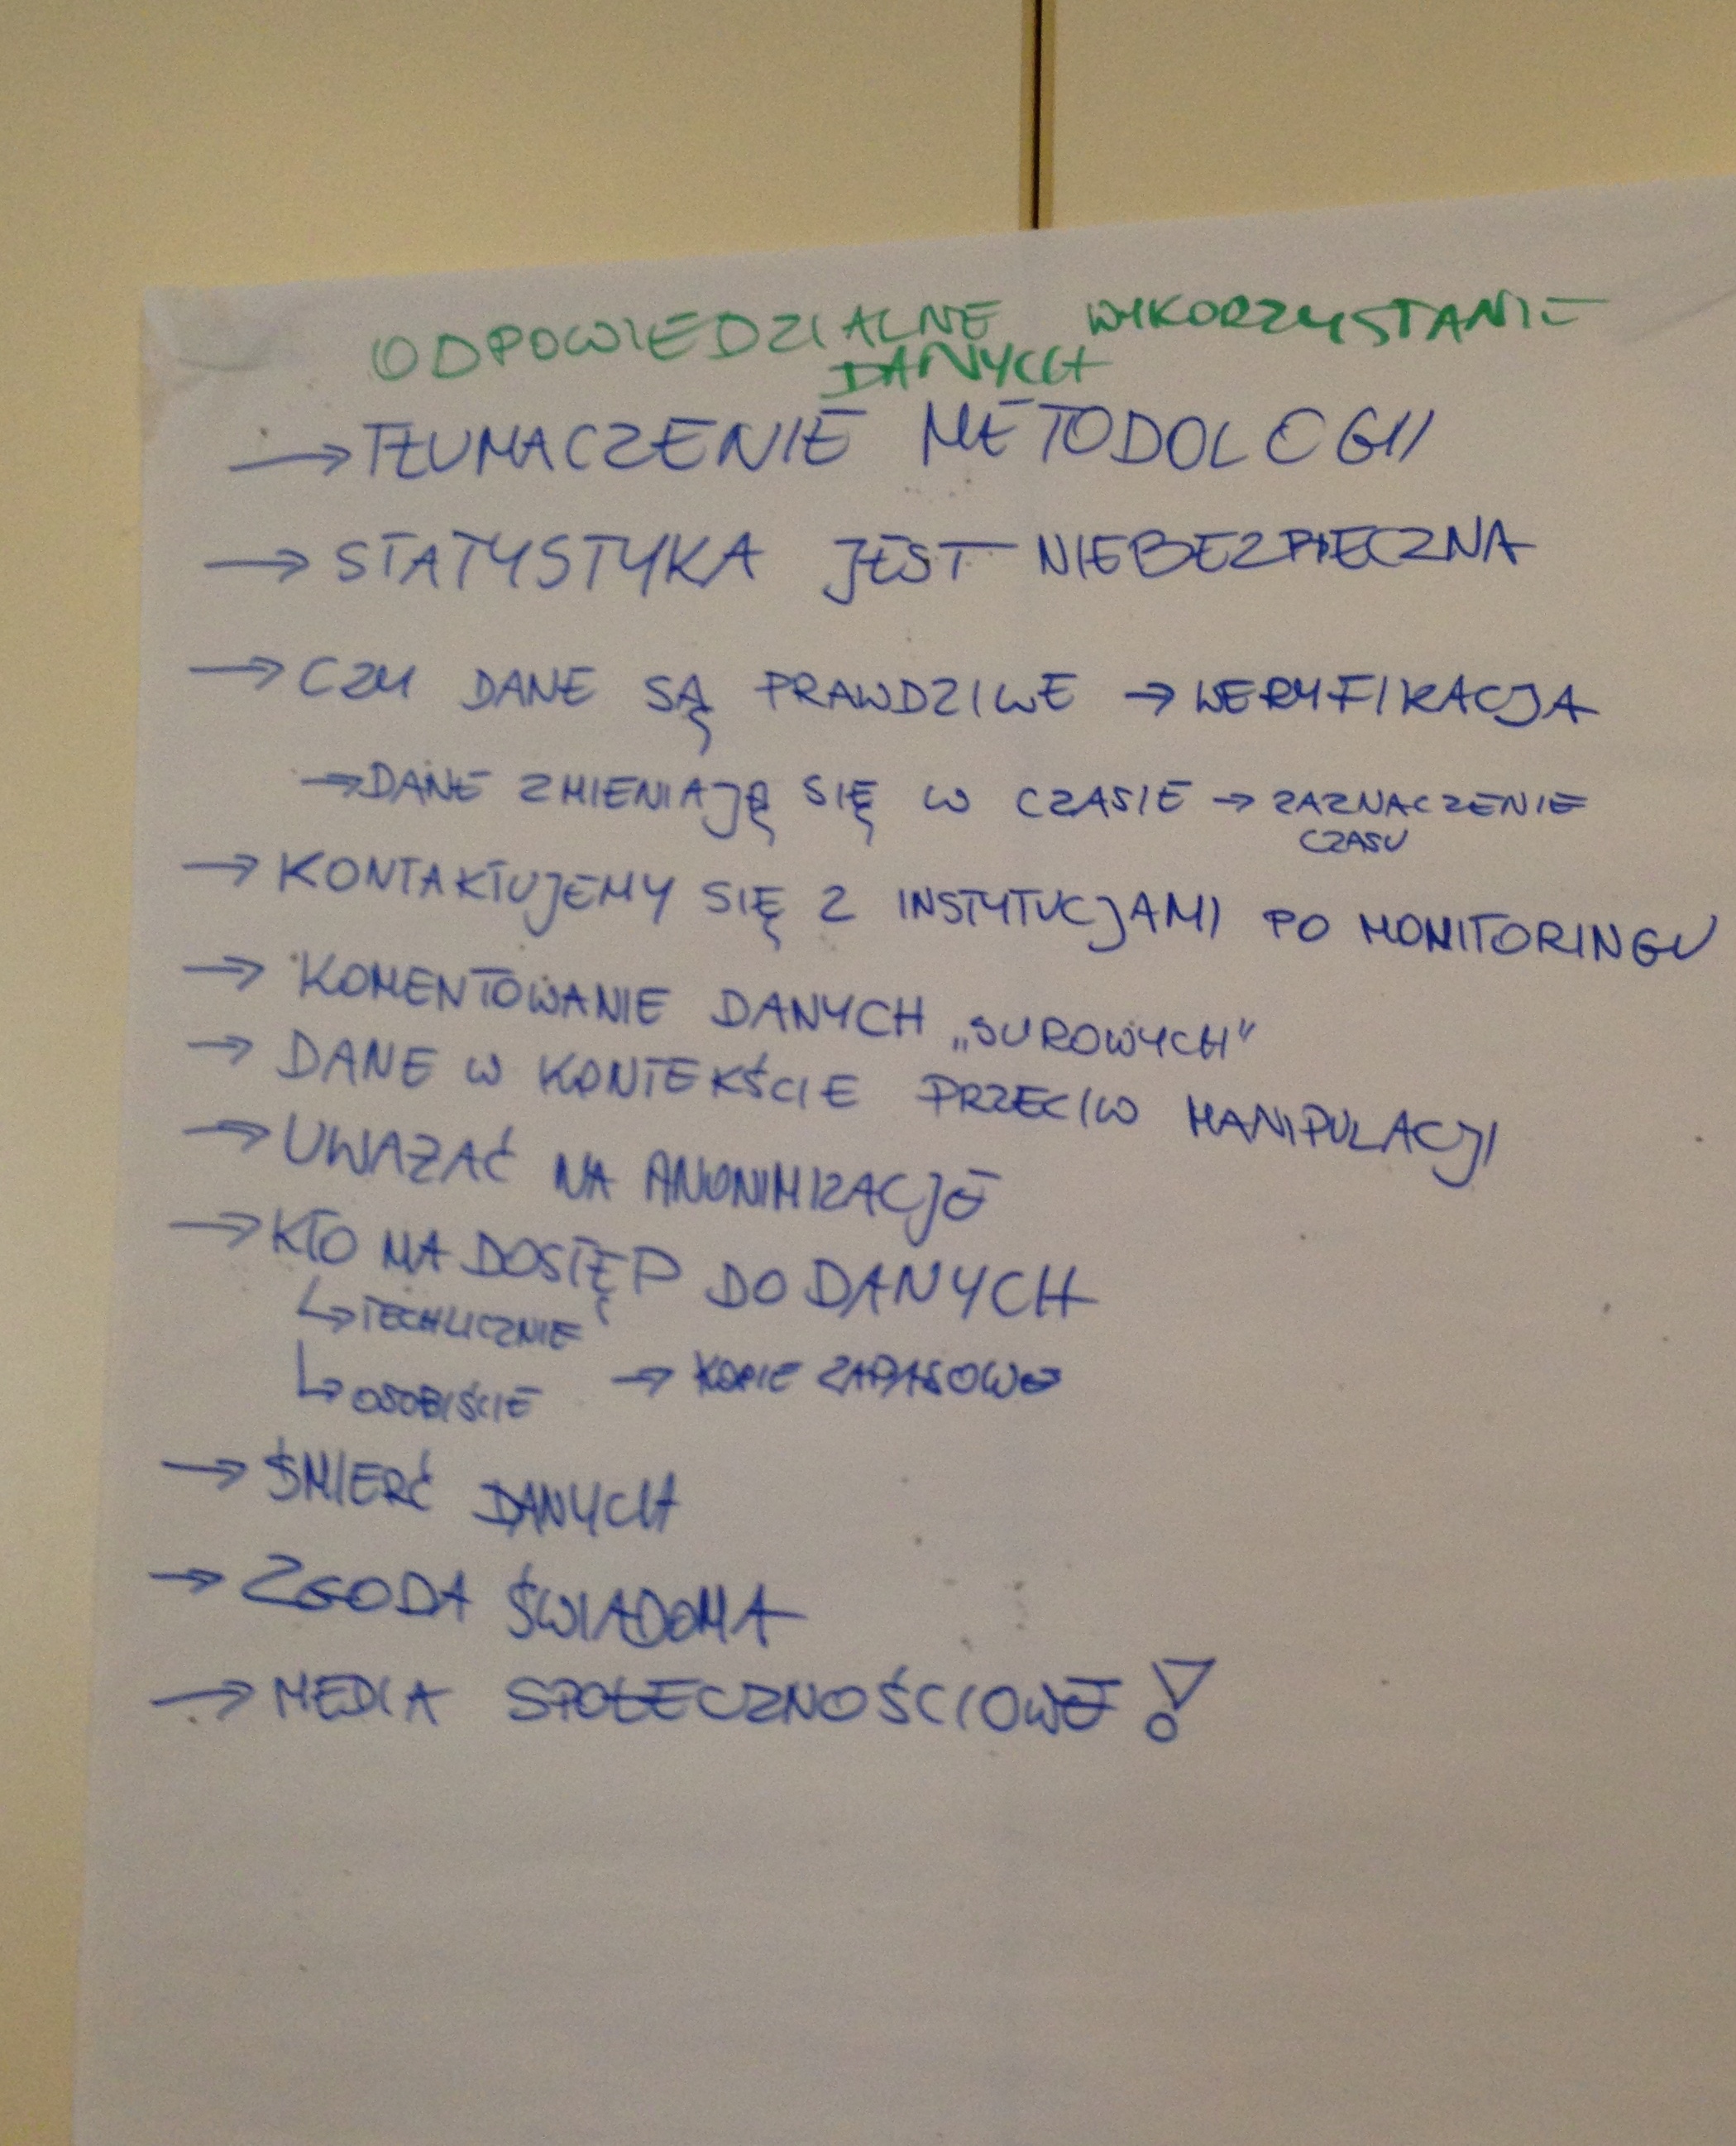 ODPOWIEDZIALNE WYKORZYSTANIE
DANYCH
→ TŁUMACZENIE METODOLOGII
→ STATYSTYKA JEST NIEBEZPIECZNA
→ CZY DANE SĄ PRAWDZIWE → WERYFIKACJA
→ DANE ZMIENIAJĄ SIĘ W CZASIE → ZAZNACZENIE
CZASU
→ KONTAKTUJEMY SIĘ Z INSTYTUCJAMI PO MONITORINGU
→ KOMENTOWANIE DANYCH „SUROWYCH"
→ DANE W KONTEKŚCIE PRZECIW MANIPULACJI
→ UWAZAĆ NA ANONIMIZACJĘ
→ KTO MA DOSTĘP DO DANYCH
↳ TECHNICZNIE
↳ OSOBIŚCIE → KOPIE ZAPASOWE
→ ŚMIERĆ DANYCH
→ ZGODA ŚWIADOMA
→ MEDIA SPOŁECZNOŚCIOWE !